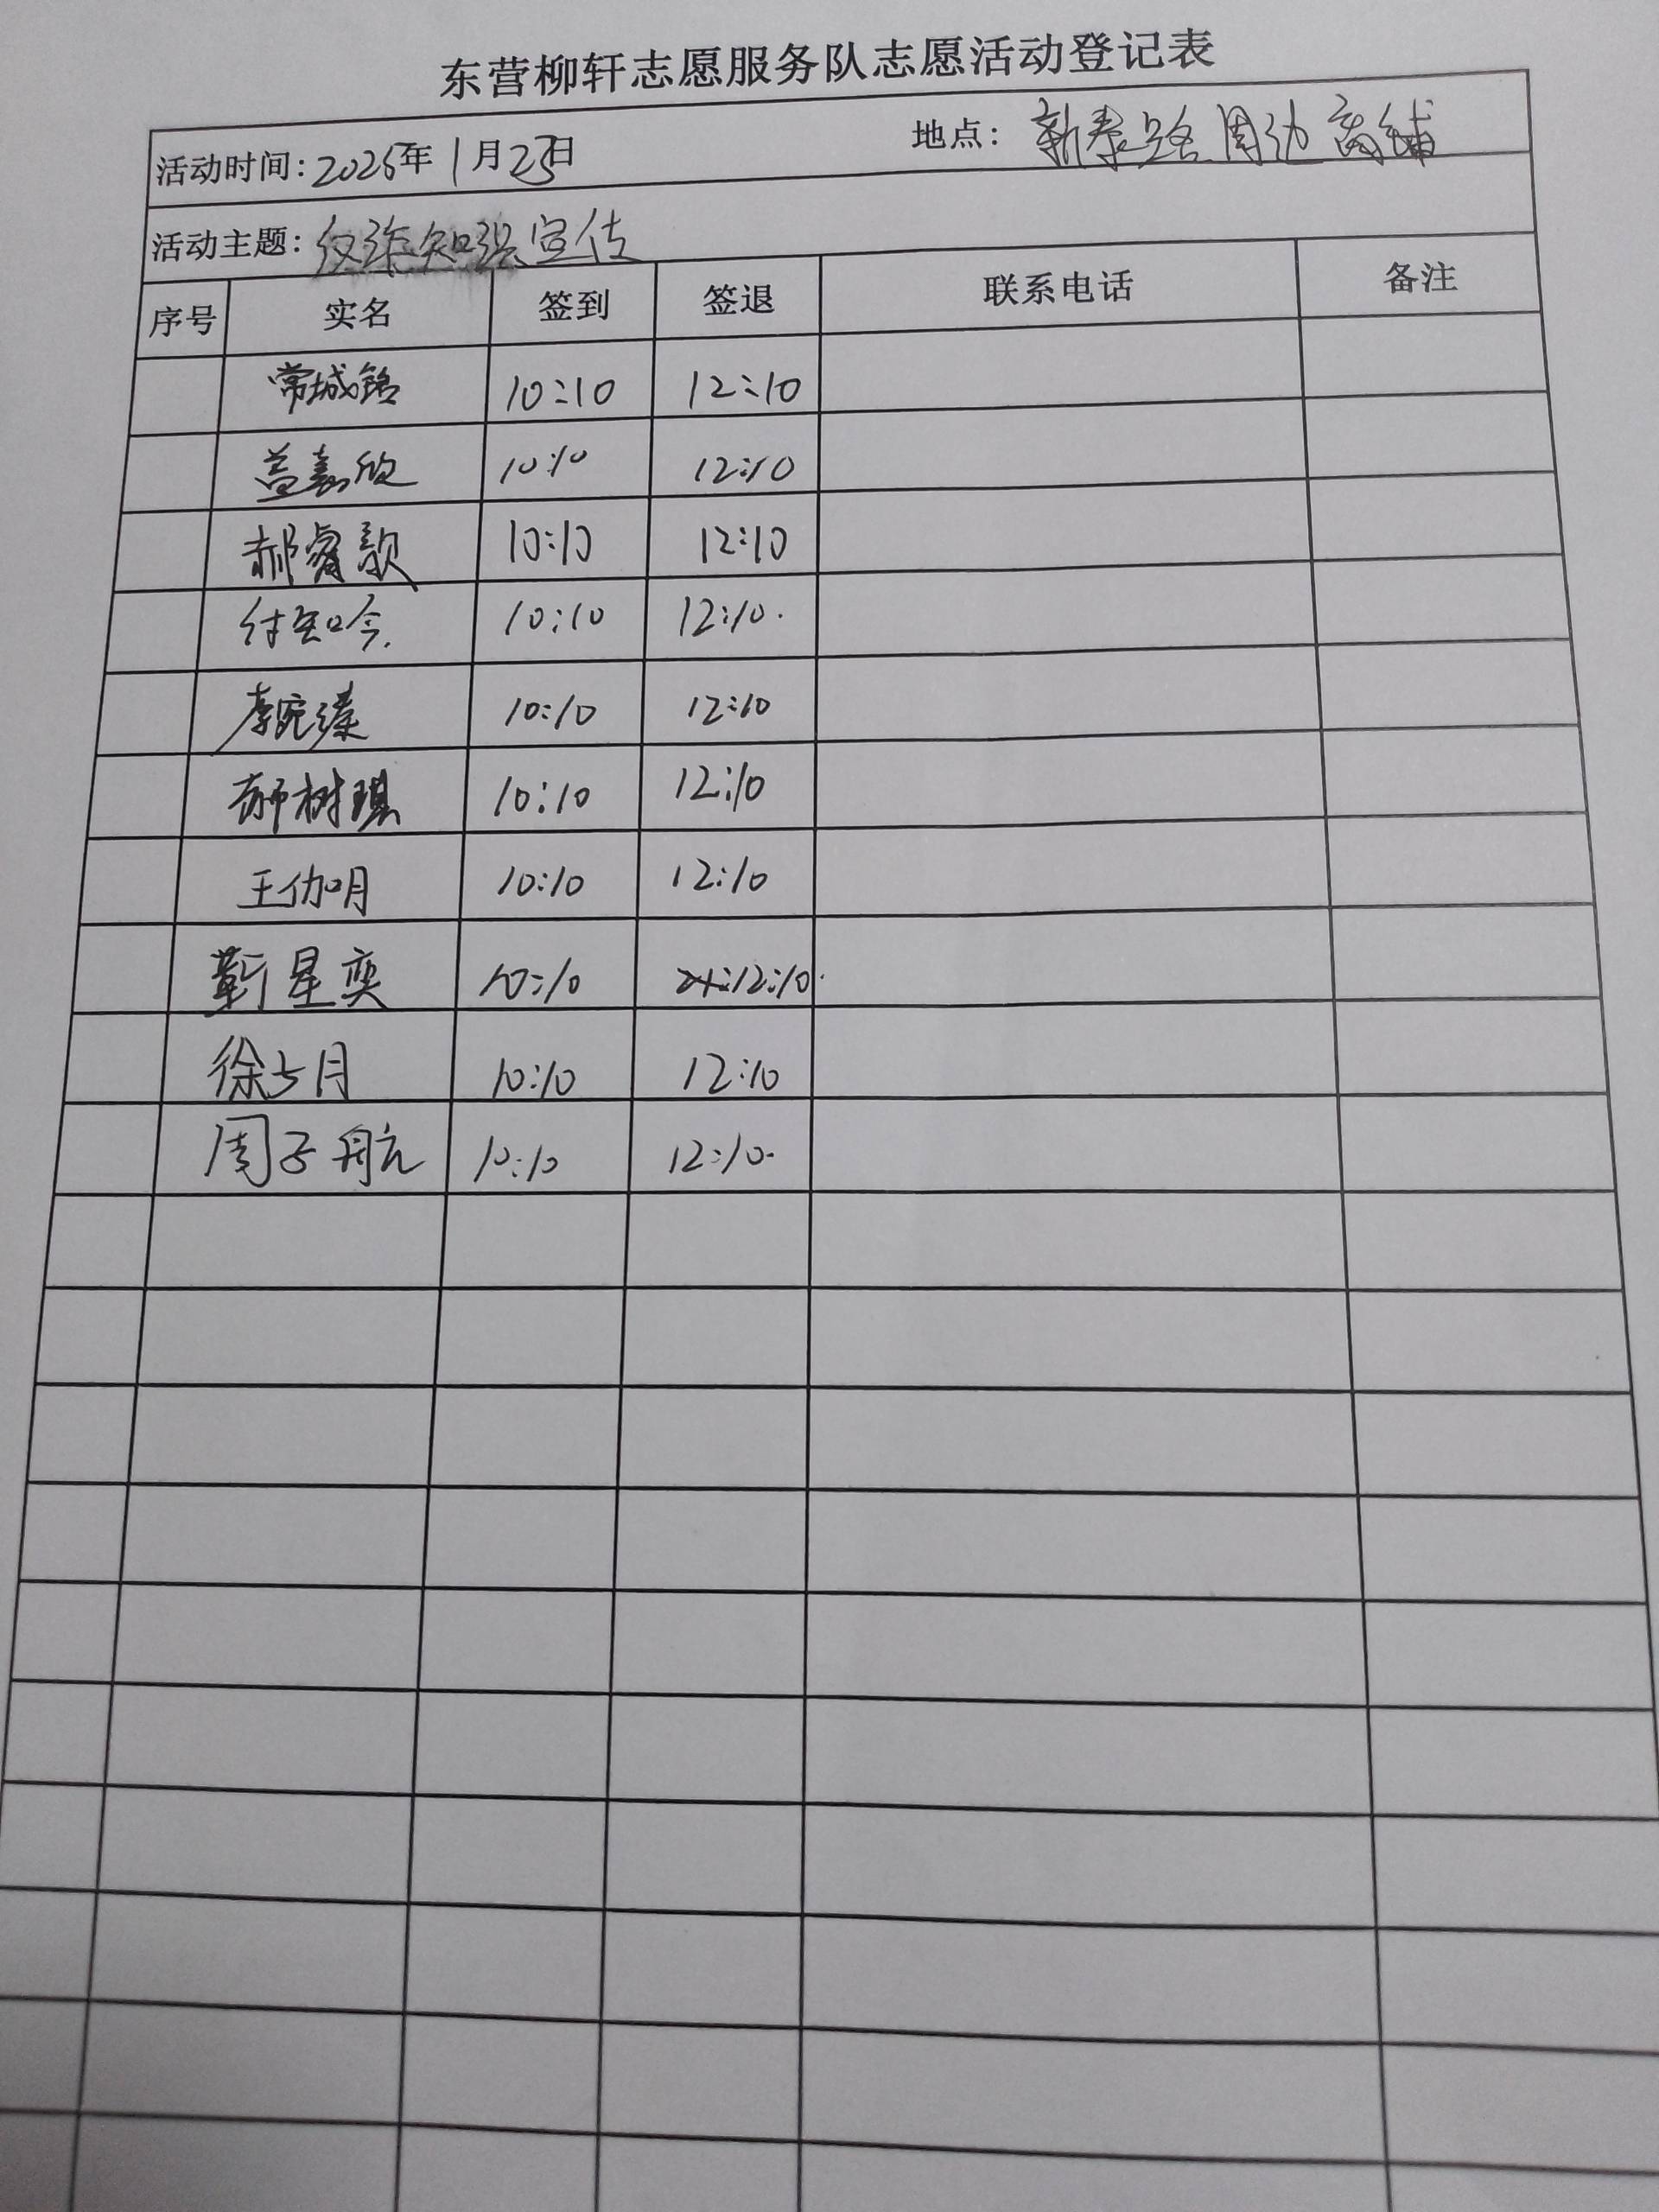 东营柳轩志愿服务队志愿活动登记表
活动时间：2025年1月23日 地点：新泰路周边商铺
活动主题：反诈知识宣传
序号 实名 签到 签退 联系电话 备注
常城铭 10:10 12:10
盖嘉欣 10:10 12:10
郝睿歆 10:10 12:10
付知吟. 10:10 12:10.
李宛臻 10:10 12:10
树琪 10:10 12:10
王伽明 10:10 12:10
靳星奕 10:10 12:10.
徐与月 10:10 12:10
周子航 10:10 12:10.